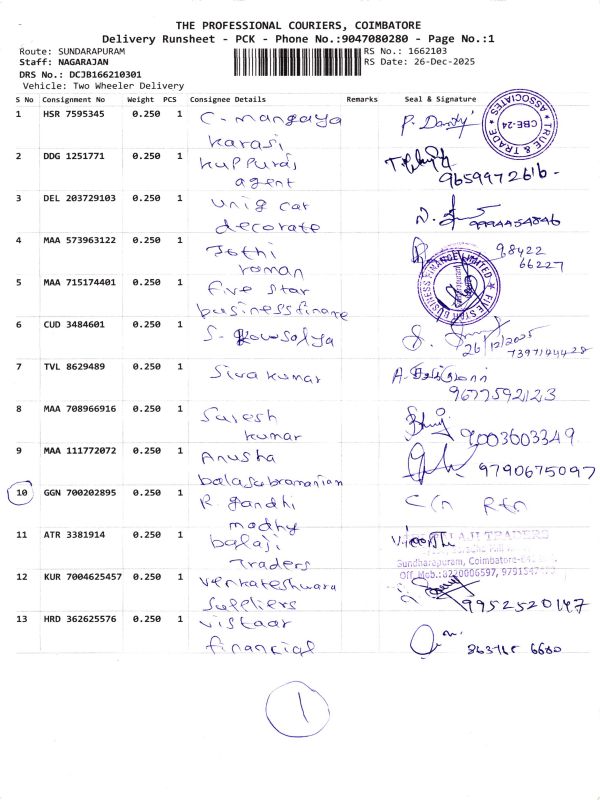 THE PROFESSIONAL COURIERS, COIMBATORE
Delivery Runsheet - PCK - Phone No.:9047080280 - Page No.:1
Route: SUNDARAPURAM RS No.: 1662103
Staff: NAGARAJAN RS Date: 26-Dec-2025
DRS No.: DCJB166210301
Vehicle: Two Wheeler Delivery
S No Consignment No Weight PCS Consignee Details Remarks Seal & Signature
TRUE & TRADE ASSOCIATES CBE-24
1 HSR 7595345 0.250 1 C. mangaya
karasi
2 DDG 1251771 0.250 1 kuppuras
agent 9659972616
3 DEL 203729103 0.250 1 uniq car
decorate 9994454846
4 MAA 573963122 0.250 1 Jothi 98422
roman 66227
5 MAA 715174401 0.250 1 five star
businessfinare
FIVE STAR BUSINESS FINANCE LIMITED
6 CUD 3484601 0.250 1 S. kowsalya
26/12/2025
7397144428
7 TVL 8629489 0.250 1 Sivakumar
9677592123
8 MAA 708966916 0.250 1 Suresh
kumar 9003603349
9 MAA 111772072 0.250 1 Anusha
balasubramanian 9790675097
10 GGN 700202895 0.250 1 R. gandhi C/n Rtn
madhy
11 ATR 3381914 0.250 1 balaji
Traders
BALAJI TRADERS
Sundarapuram, Coimbatore-
Off Mob.:8220006597,
12 KUR 7004625457 0.250 1 venkateshwara
Suppliers 9952520147
13 HRD 362625576 0.250 1 vistaar
financial 6680
1